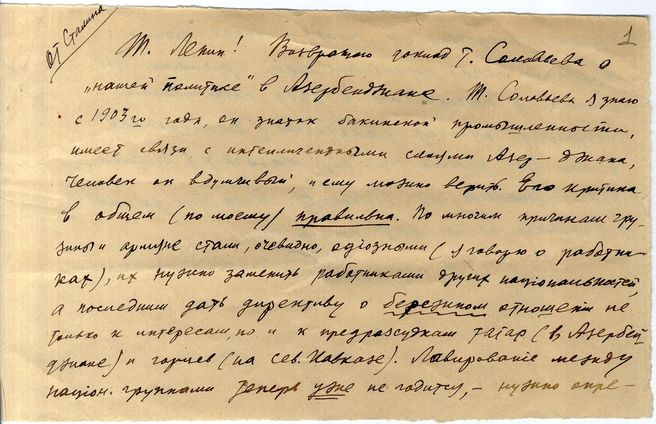 от Сталина
1
Т. Ленин! Возвращаю доклад т. Соловьева о
„нашей политике" в Азербейджане. Т. Соловьева я знаю
с 1903го года, он знаток бакинской промышленности,
имеет связи с интеллигентными слоями Азер-джана,
человек он вдумчивый, и ему можно верить. Его критика
в общем (по моему) правильна. По многим причинам гру-
зины и армяне стали, очевидно, одиозными (я говорю о работни-
ках), их нужно заменить работниками других национальностей,
а последним дать директиву о бережном отношении не
только к интересам, но и к предрассудкам татар (в Азербей-
джане) и горцев (на сев. Кавказе). Лавирование между
национ. группами теперь уже не годится, – нужно опре-